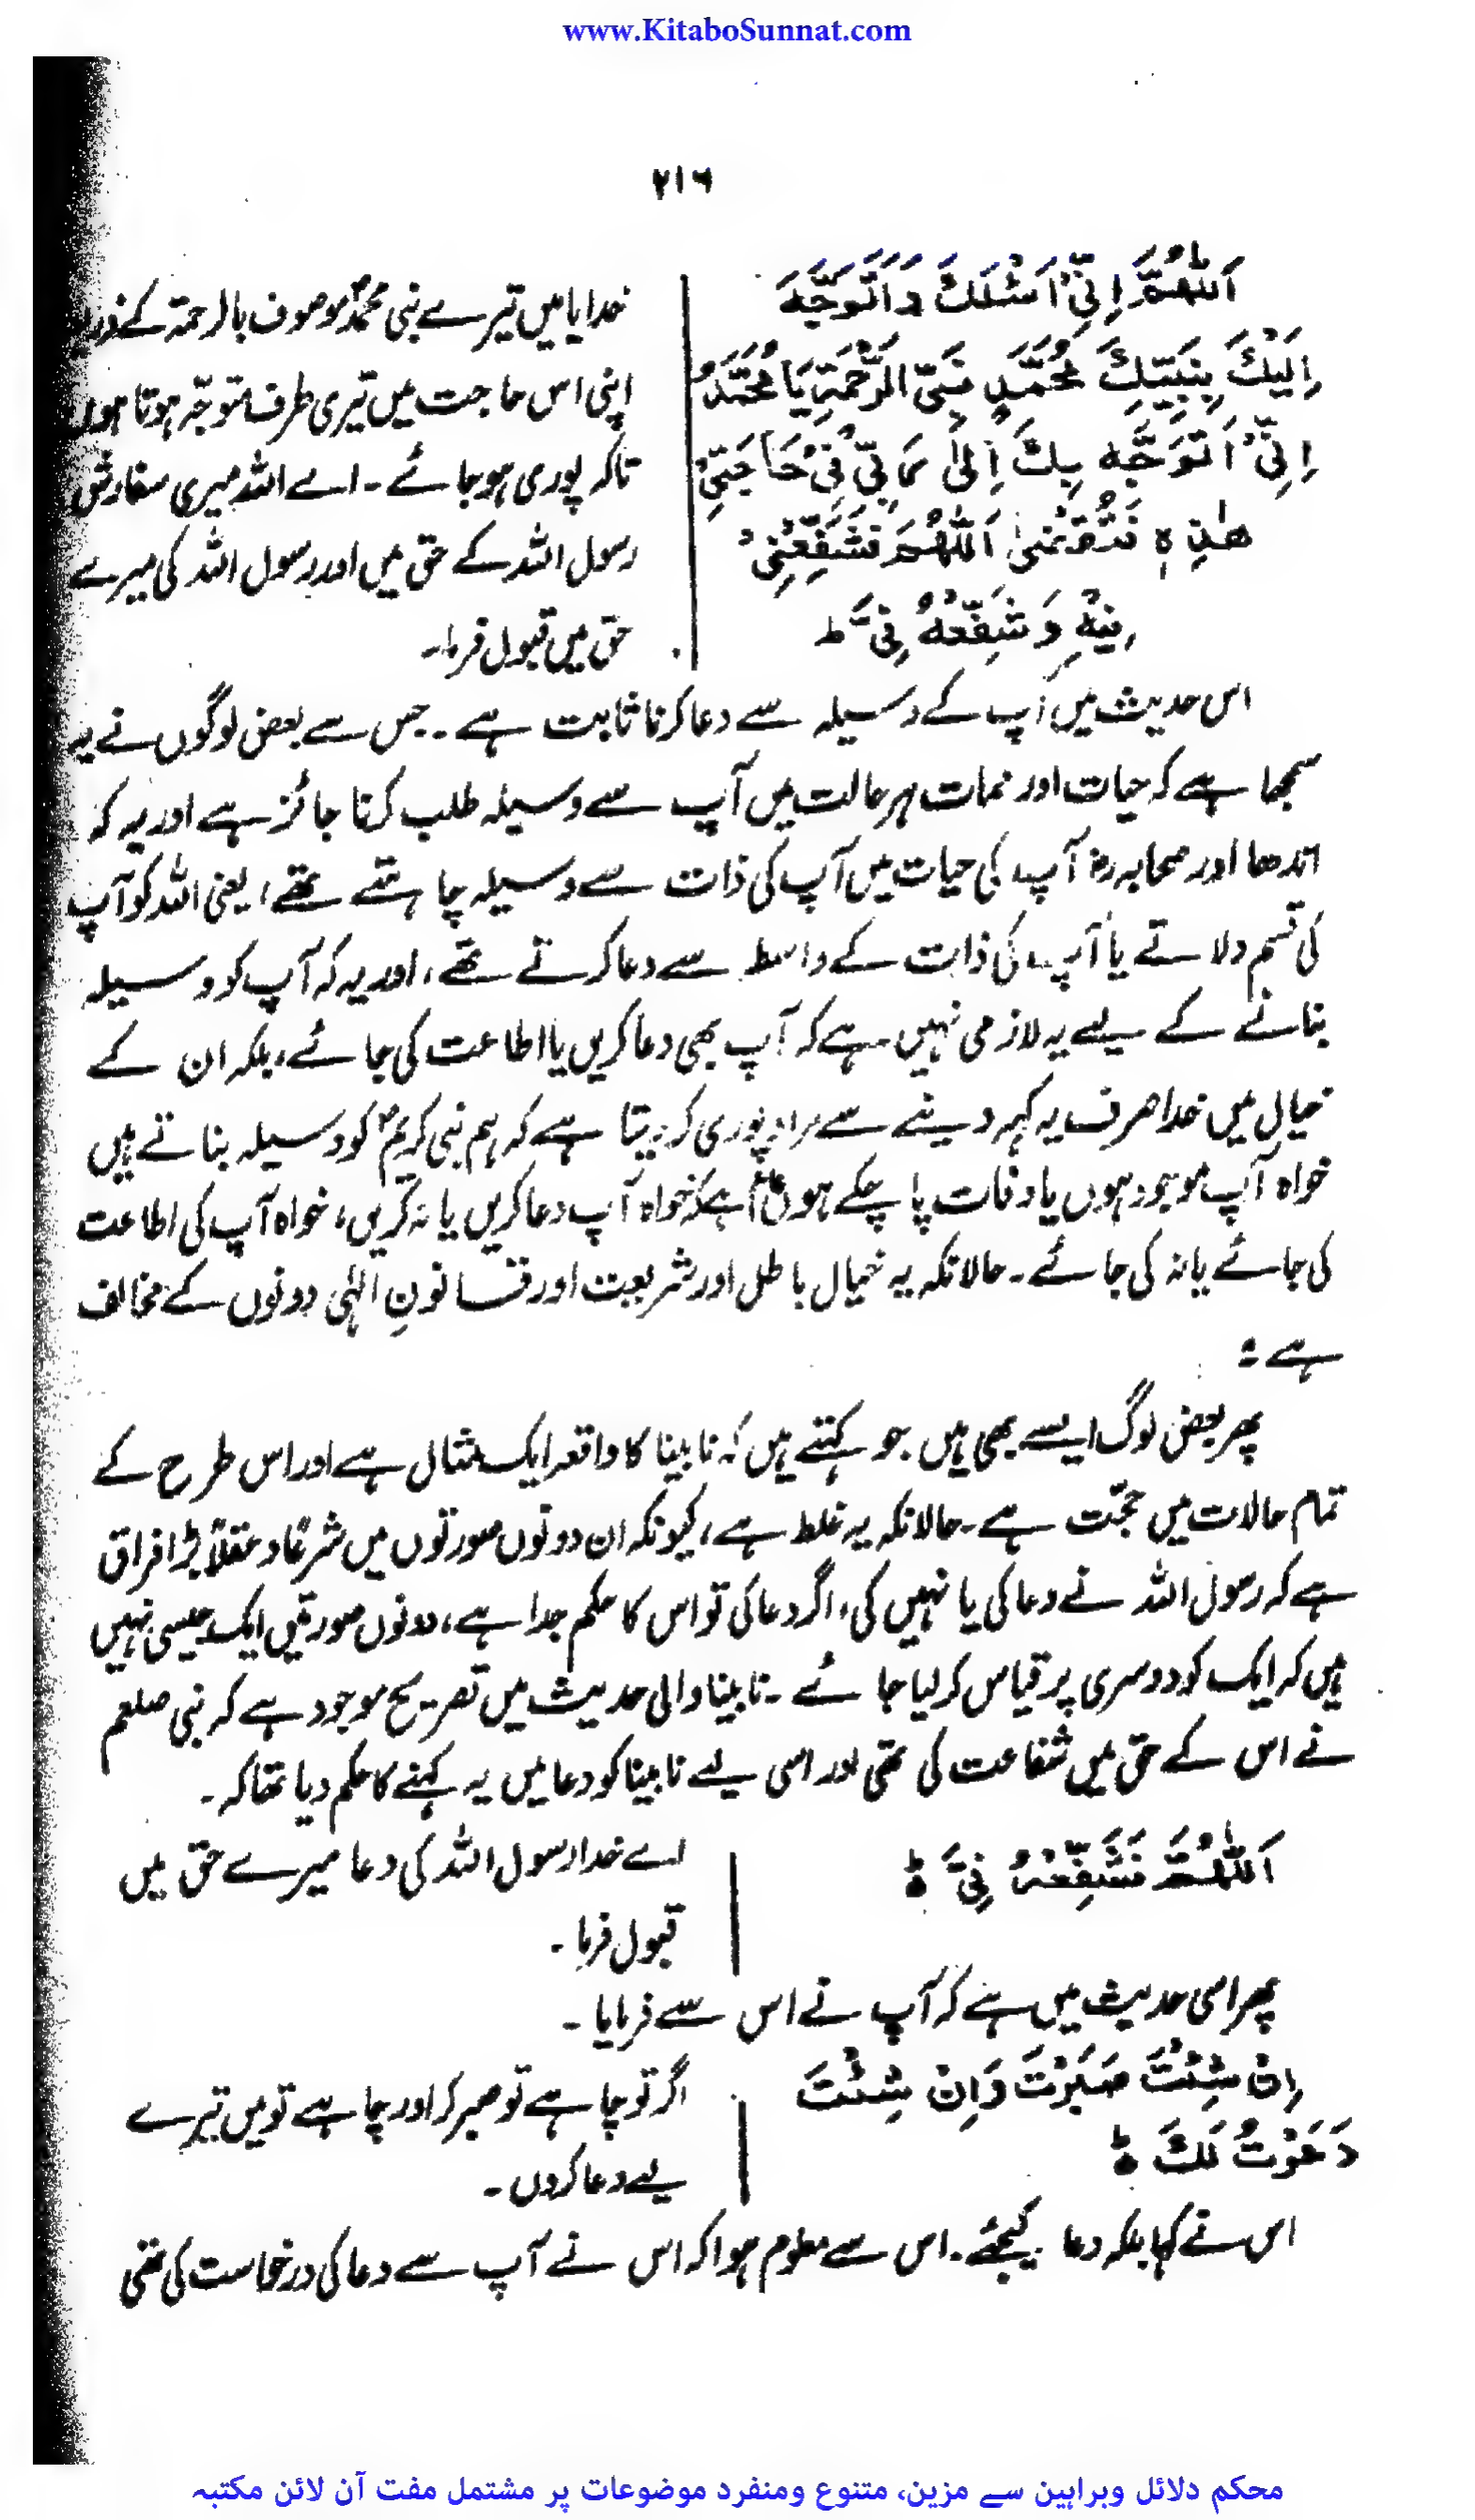 www.KitaboSunnat.com
۲۱۶
اَللّٰهُمَّ اِنِّیْ اَسْئَلُكَ وَاَتَوَجَّهُ
اِلَیْكَ بِنَبِیِّكَ مُحَمَّدٍ نَبِیِّ الرَّحْمَةِ یَا مُحَمَّدُ
اِنِّیْ اَتَوَجَّهُ بِكَ اِلٰی رَبِّیْ فِیْ حَاجَتِیْ
هٰذِهٖ فَتُقْضٰی اَللّٰهُمَّ فَشَفِّعْنِیْ
فِیْهِ وَشَفِّعْهُ فِیَّ ط
خدایا میں تیرے نبی محمدؐ موصوف بالرحمۃ کے ذریعہ
اپنی اس حاجت میں تیری طرف متوجّہ ہوتا ہوں
تاکہ پوری ہو جائے۔ اے اللہ میری سفارش
رسول اللہ کے حق میں اور رسول اللہ کی میرے
حق میں قبول فرما۔
اس حدیث میں آپ کے وسیلہ سے دعا کرنا ثابت ہے۔ جس سے بعض لوگوں نے یہ
سمجھا ہے کہ حیات اور ممات ہر حالت میں آپ سے وسیلہ طلب کرنا جائز ہے اور یہ کہ
اندھا اور صحابہ رض آپ کی حیات میں آپ کی ذات سے وسیلہ چاہتے تھے، یعنی اللہ کو آپ
کی قسم دلاتے یا آپ کی ذات کے واسطہ سے دعا کرتے تھے، اور یہ کہ آپ کو وسیلہ
بنانے کے لیے یہ لازمی نہیں ہے کہ آپ بھی دعا کریں یا اطاعت کی جائے، بلکہ ان کے
خیال میں خدا صرف یہ کہہ دینے سے مراد پوری کر دیتا ہے کہ ہم نبی کریمؐ کو وسیلہ بناتے ہیں
خواہ آپ موجود ہوں یا وفات پا چکے ہوں ہے کہ خواہ آپ دعا کریں یا نہ کریں، خواہ آپ کی اطاعت
کی جائے یا نہ کی جائے۔ حالانکہ یہ خیال باطل اور شریعت اور قانونِ الٰہی دونوں کے مخالف
ہے۔
پھر بعض لوگ ایسے بھی ہیں جو کہتے ہیں کہ نابینا کا واقعہ ایک مثال ہے اور اس طرح کے
تمام حالات میں حجّت ہے۔ حالانکہ یہ غلط ہے، کیونکہ ان دونوں صورتوں میں شرعًا و عقلاً بڑا فراق
ہے کہ رسول اللہ نے دعا کی یا نہیں کی، اگر دعا کی تو اس کا حکم جدا ہے، دونوں صورتیں ایک جیسی نہیں
ہیں کہ ایک کو دوسری پر قیاس کر لیا جائے۔ نابینا والی حدیث میں تصریح موجود ہے کہ نبی صلعم
نے اس کے حق میں شفاعت کی تھی اور اسی لیے نابینا کو دعا میں یہ کہنے کا حکم دیا تھا کہ۔
اَللّٰهُمَّ فَشَفِّعْهُ فِیَّ ط
اے خدا رسول اللہ کی دعا میرے حق میں
قبول فرما۔
پھر اسی حدیث میں ہے کہ آپ نے اس سے فرمایا۔
اِنْ شِئْتَ صَبَرْتَ وَاِنْ شِئْتَ
دَعَوْتُ لَكَ ط
اگر تو چاہے تو صبر کر اور چاہے تو میں تیرے
لیے دعا کروں۔
اس نے کہا بلکہ دعا کیجئے۔ اس سے معلوم ہوا کہ اس نے آپ سے دعا کی درخواست کی تھی
محکم دلائل وبراہین سے مزین، متنوع ومنفرد موضوعات پر مشتمل مفت آن لائن مکتبہ